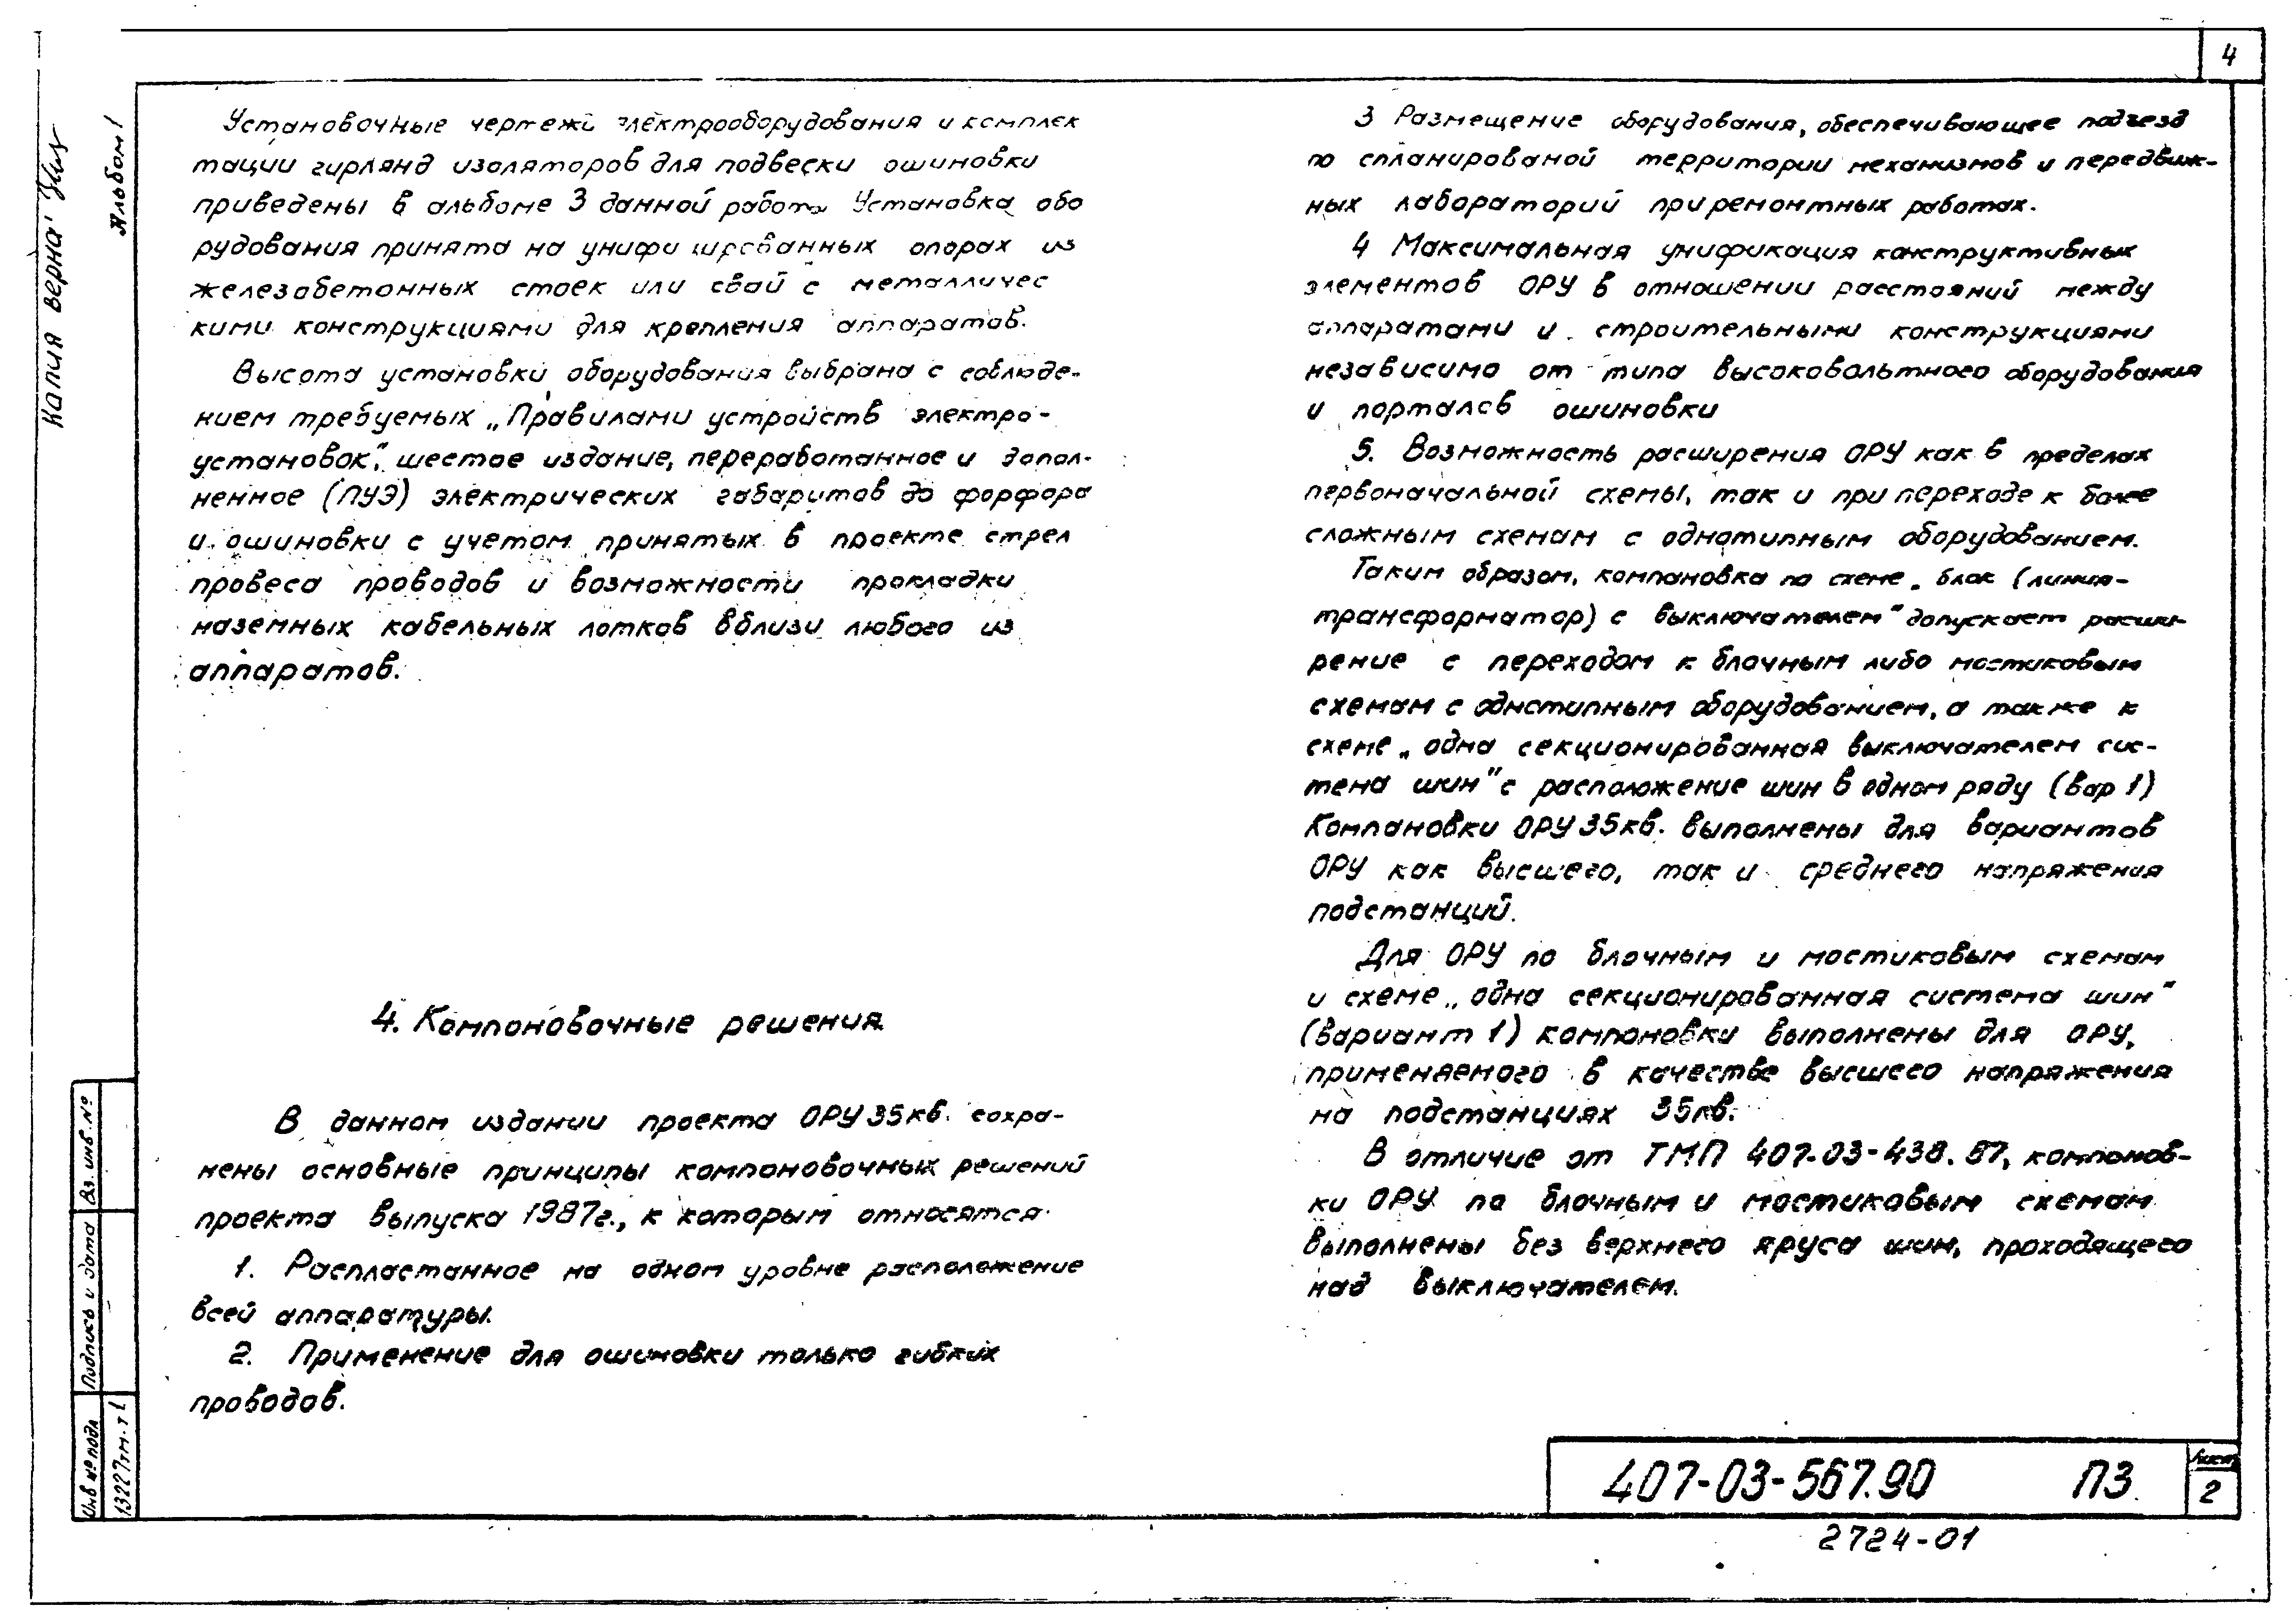 4
Копия верна:
Альбом 1
Установочные чертежи электрооборудования и комплек
тации гирлянд изоляторов для подвески ошиновки
приведены в альбоме 3 данной работы Установка обо
рудования принята на унифицированных опорах из
железобетонных стоек или свай с металличес
кими конструкциями для крепления аппаратов.
Высота установки оборудования выбрана с соблюде-
нием требуемых „Правилами устройств электро-
установок", шестое издание, переработанное и допол-
ненное (ПУЭ) электрических габаритов до фарфора
и ошиновки с учетом принятых в проекте стрел
провеса проводов и возможности прокладки
наземных кабельных лотков вблизи любого из
аппаратов.
4. Компоновочные решения
В данном издании проекта ОРУ 35кв. сохра-
нены основные принципы компоновочных решений
проекта выпуска 1987г., к которым относятся
1. Распластанное на одном уровне расположение
всей аппаратуры.
2. Применение для ошиновки только гибких
проводов.
3 Размещение оборудования, обеспечивающее подъезд
по спланированой территории механизмов и передвиж-
ных лабораторий при ремонтных работах.
4 Максимальная унификация конструктивных
элементов ОРУ в отношении расстояний между
аппаратами и строительными конструкциями
независимо от типа высоковольтного оборудования
и порталов ошиновки
5. Возможность расширения ОРУ как в пределах
первоначальной схемы, так и при переходе к более
сложным схемам с однотипным оборудованием.
Таким образом, компановка по схеме „блок (линия-
трансформатор) с выключателем" допускает расши-
рение с переходом к блочным либо мостиковым
схемам с однотипным оборудованием, а также к
схеме „одна секционированная выключателем сис-
тема шин" с расположение шин в одном ряду (вар 1)
Компановки ОРУ 35кв. выполнены для вариантов
ОРУ как высшего, так и среднего напряжения
подстанций.
Для ОРУ по блочным и мостиковым схемам
и схеме „одна секционированная система шин"
(вариант 1) компановки выполнены для ОРУ,
применяемого в качестве высшего напряжения
на подстанциях 35кв.
В отличие от ТМП 407-03-438.87, компонов-
ки ОРУ по блочным и мостиковым схемам
выполнены без верхнего яруса шин, проходящего
над выключателем.
Вз. инв. №
Подпись и дата
Инв № подл
13227тм-т1
407-03-567.90 ПЗ
Лист
2
2724-01